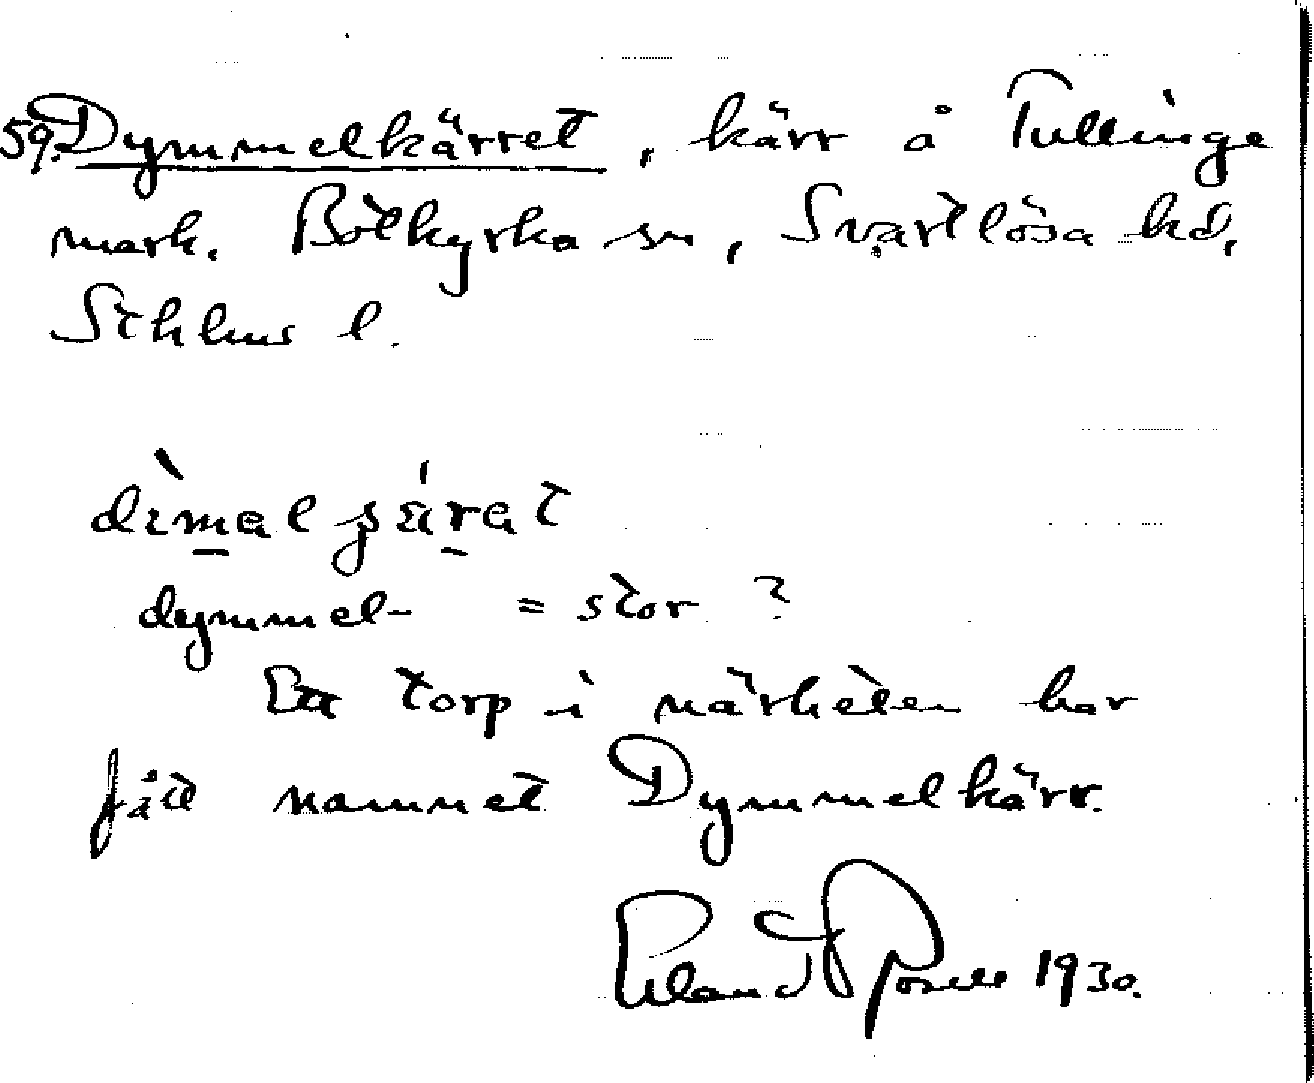 59. Dymmelkärret, kärr å Tullinge
mark. Botkyrka sn, Svartlösa hd,
Sthlms l.
dymmel- = stor ?
Ett torp i närheten har
fått namnet Dymmelkärr.
Erland Rosell 1930.